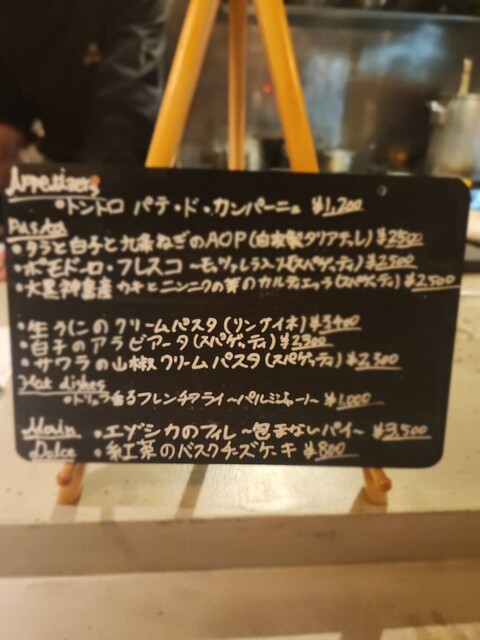 Appetizer
・トントロ パテ・ド・カンパーニュ ¥1,200
Pasta
・タラと白子と九条ねぎのAOP(自家製タリアテッレ) ¥2500
・ポモドーロ・フレスコ 〜モッツァレラ入り(スパゲッティ) ¥2500
・大黒神島産カキとニンニクの芽のカルディエッラ(スパゲッティ) ¥2,500
・生うにのクリームパスタ(リングイネ) ¥3,400
・白子のアラビアータ(スパゲッティ) ¥2300
・サワラの山椒クリームパスタ(スパゲッティ) ¥2,300
Hot dishes
・トリュフ香るフレンチフライ〜パルミジャーノ〜 ¥1,000
Main ・エゾシカのフィレ〜包まないパイ〜 ¥3,500
Dolce ・紅茶のバスクチーズケーキ ¥800